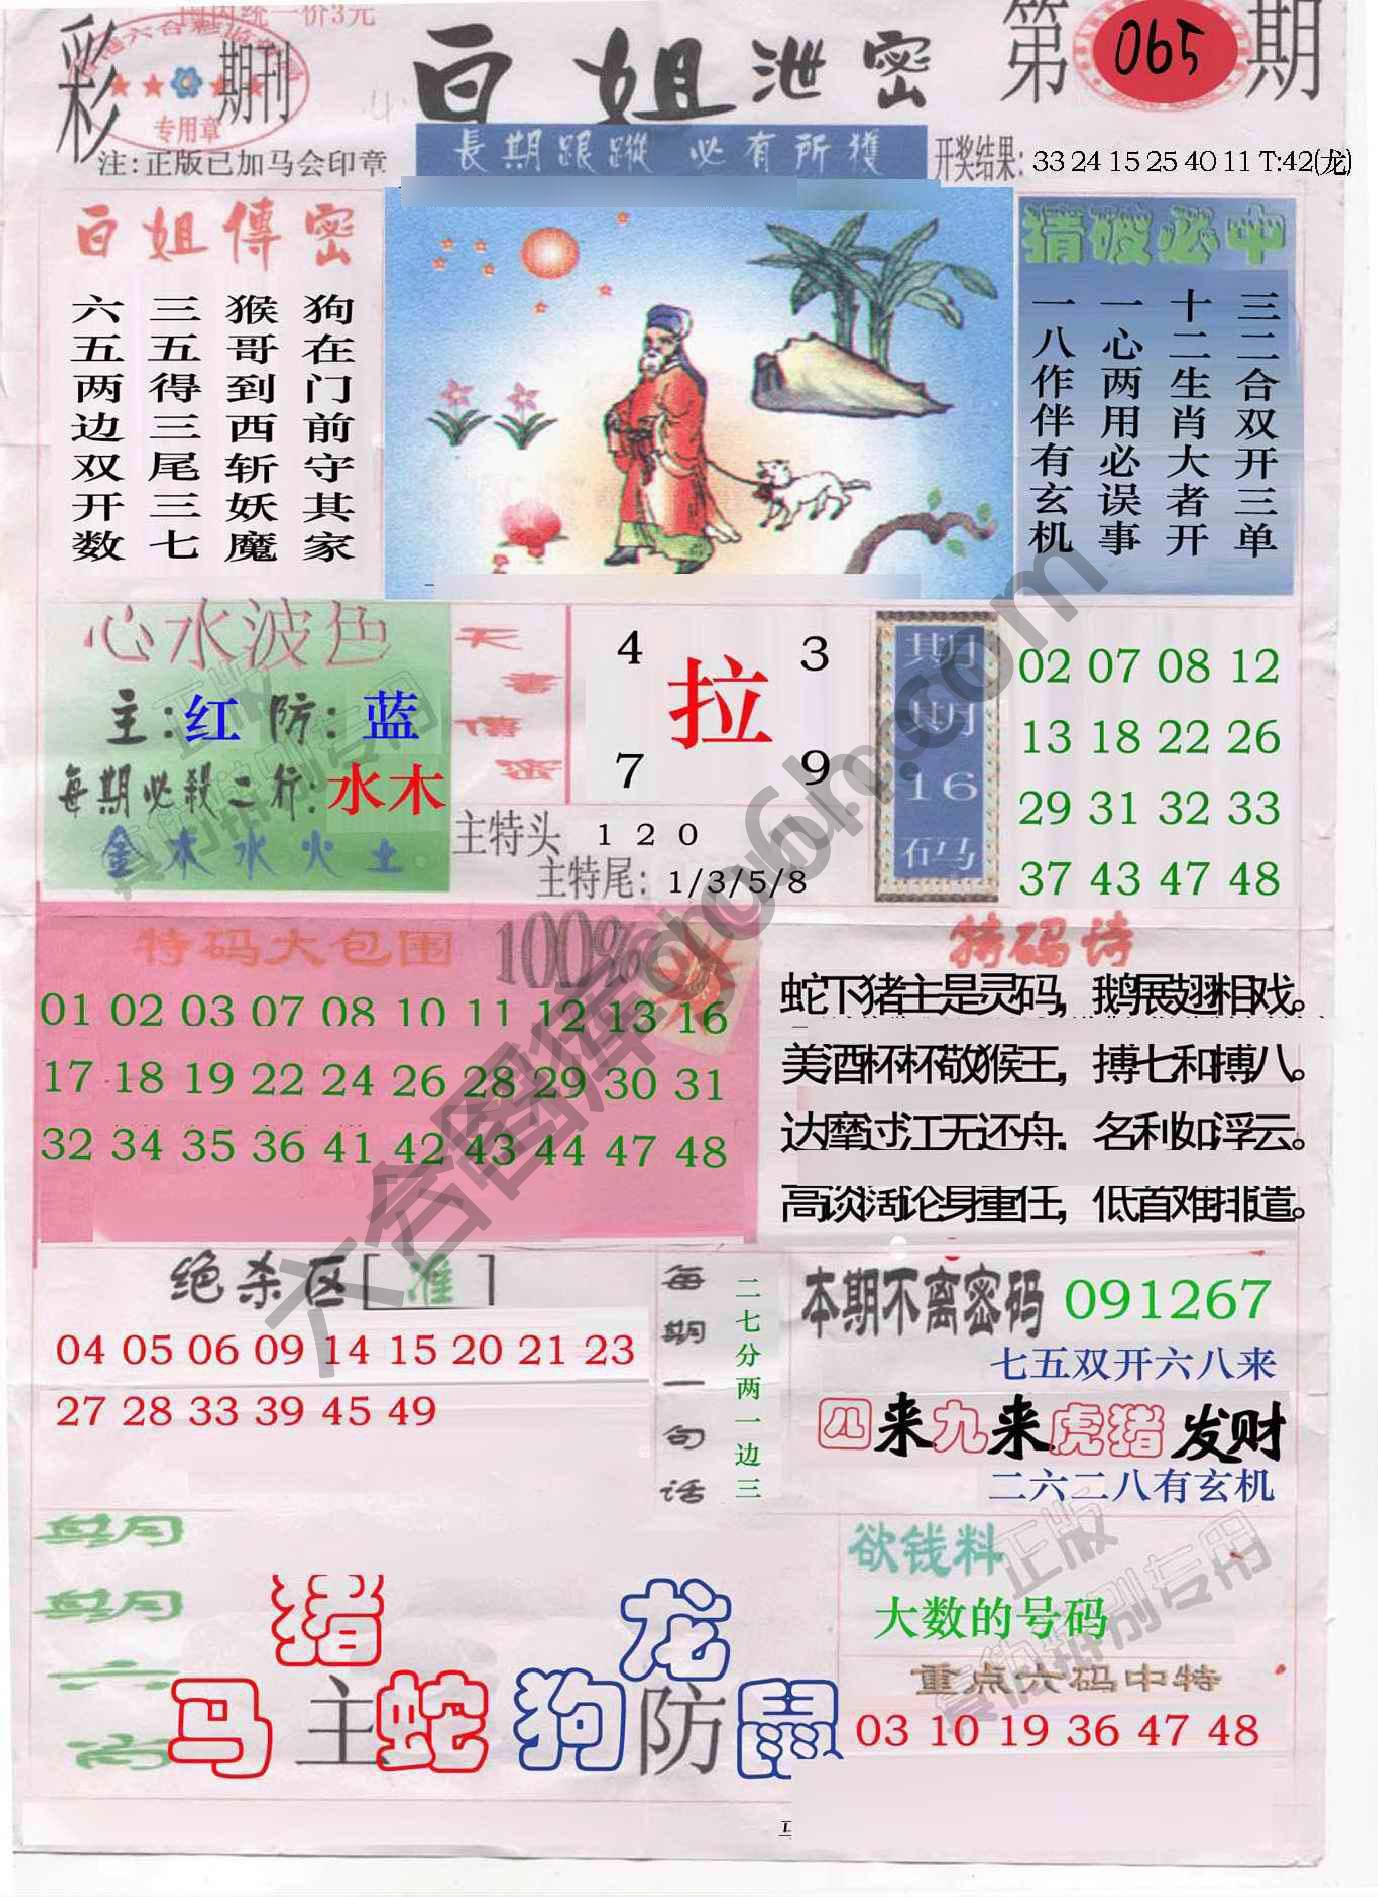 国内统一价3元
彩
期刊
专用章
注:正版已加马会印章
白姐泄密
長期跟蹤 必有所獲
第065期
开奖结果:33 24 15 25 40 11 T:42(龙)
白姐傳密
狗在门前守其家
猴哥到西斩妖魔
三五得三尾三七
六五两边双开数
猜破必中
三二合双开三单
十二生肖大者开
一心两用必误事
一八作伴有玄机
心水波色
主:红防:蓝
每期必殺二行:水木
金木水火土
天書傳密
4 3
拉
7 9
主特头 1 2 0
主特尾:1/3/5/8
期期16码
02 07 08 12
13 18 22 26
29 31 32 33
37 43 47 48
特码大包围 100%
01 02 03 07 08 10 11 12 13 16
17 18 19 22 24 26 28 29 30 31
32 34 35 36 41 42 43 44 47 48
特码诗
蛇下猪主是灵码,鹅展翅相戏。
美酒杯杯敬猴王,搏七和搏八。
达摩过江无还舟.名利如浮云。
高谈阔论身重任,低首难排遣。
绝杀区[准]
04 05 06 09 14 15 20 21 23
27 28 33 39 45 49
每期一句话
二七分两一边三
本期不离密码 091267
七五双开六八来
四来九来虎猪发财
二六二八有玄机
期期六肖
猪
马主蛇
龙
狗防鼠
欲钱料
大数的号码
重点六码中特
03 10 19 36 47 48
正版
正版
六合图库